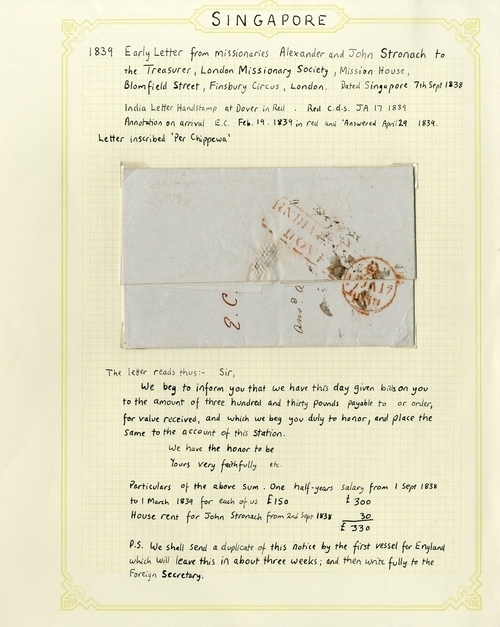 SINGAPORE
1839 Early Letter from missionaries Alexander and John Stronach to
the Treasurer, London Missionary Society, Mission House,
Blomfield Street, Finsbury Circus, London. Dated Singapore 7th Sept 1838
India Letter Handstamp at Dover in Red. Red C.d.s. JA 17 1839
Annotation on arrival E.C. Feb. 19. 1839 in red and 'Answered April 29 1839.
Letter inscribed 'Per Chippewa'
INDIA
DOVE
JA 17
E.C.
Ans. a
The letter reads thus:- Sir,
We beg to inform you that we have this day given bills on you
to the amount of three hundred and thirty pounds payable to or order,
for value received, and which we beg you duly to honor, and place the
same to the account of this Station.
We have the honor to be
Yours very faithfully etc.
Particulars of the above Sum. One half-years salary from 1 Sept 1838
to 1 March 1839 for each of us £150 £ 300
House rent for John Stronach from 2nd Sept 1838 30
£ 330
P.S. We shall send a duplicate of this notice by the first vessel for England
which will leave this in about three weeks; and then write fully to the
Foreign Secretary.